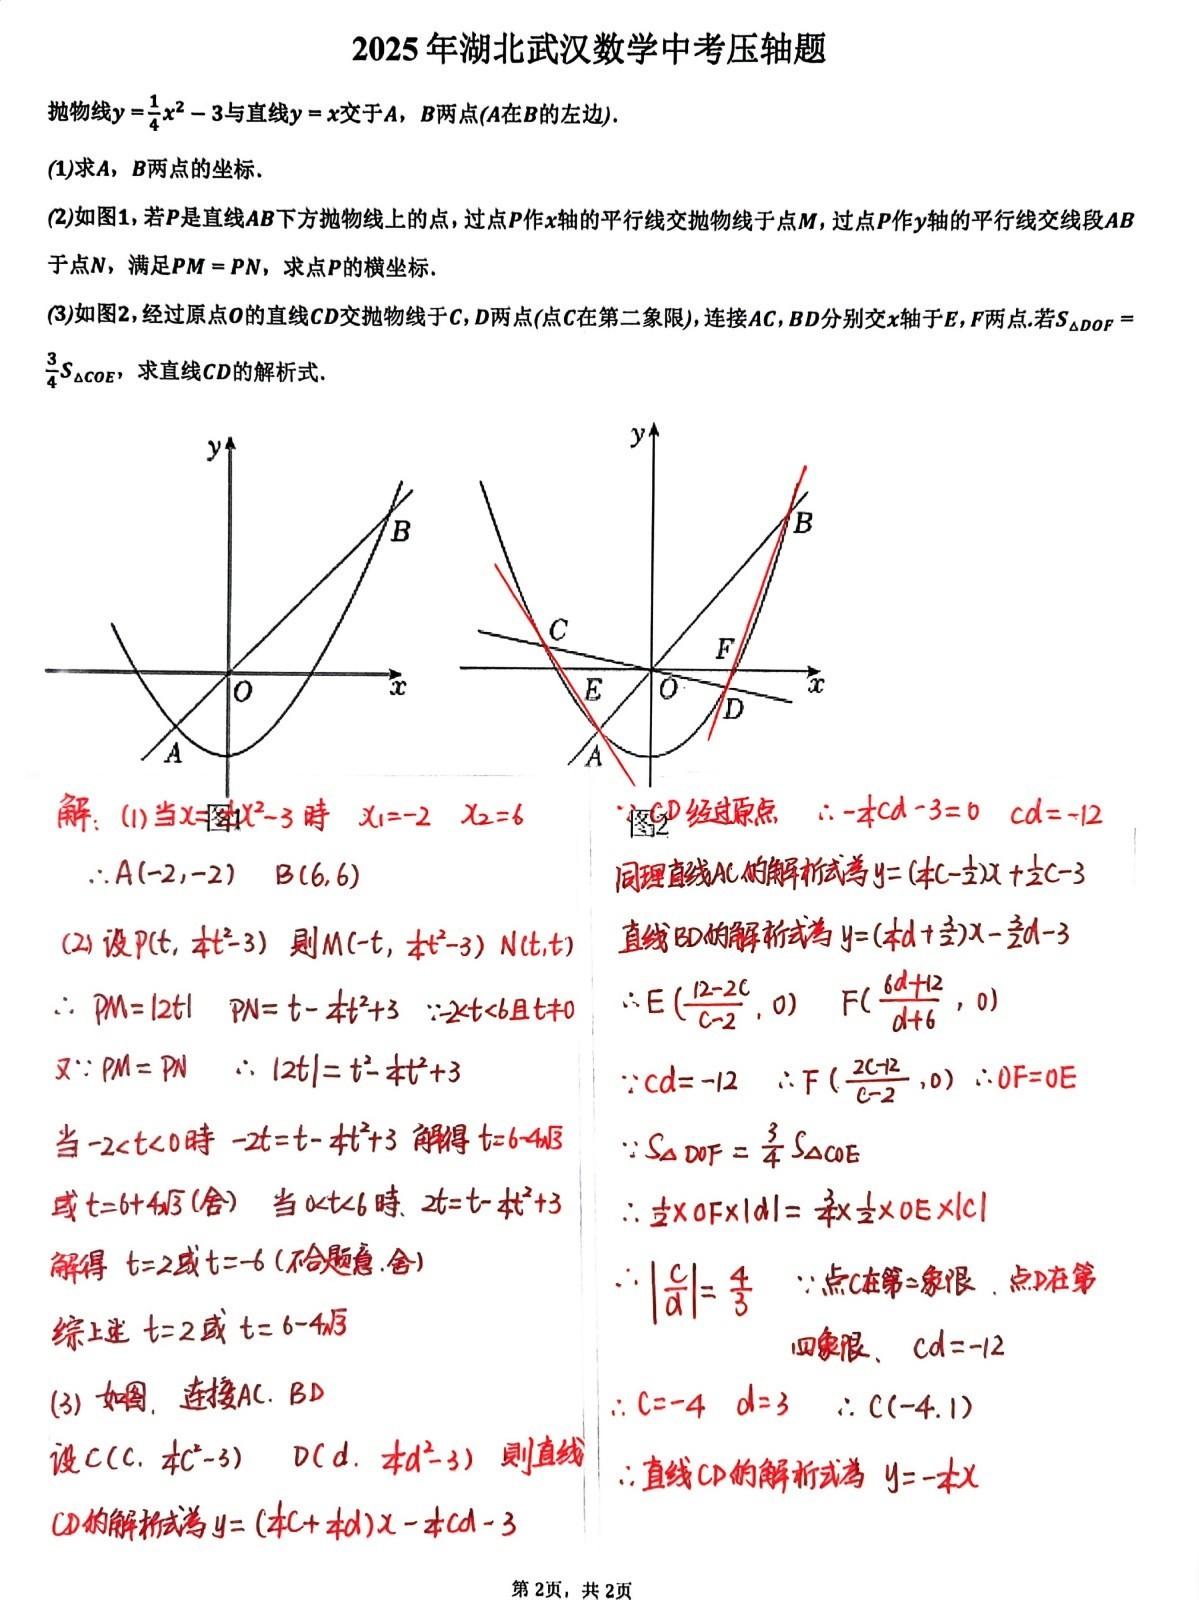 2025年湖北武汉数学中考压轴题
抛物线y=1/4x²−3与直线y=x交于A，B两点(A在B的左边).
(1)求A，B两点的坐标.
(2)如图1，若P是直线AB下方抛物线上的点，过点P作x轴的平行线交抛物线于点M，过点P作y轴的平行线交线段AB
于点N，满足PM=PN，求点P的横坐标.
(3)如图2，经过原点O的直线CD交抛物线于C，D两点(点C在第二象限)，连接AC，BD分别交x轴于E，F两点.若S△DOF=
3/4S△COE，求直线CD的解析式.
y
B
O
x
A
y
B
C
F
E
O
x
D
A
图1
图2
解：(1)当x=1/4x²-3時 x₁=-2 x₂=6
∴A(-2,-2) B(6,6)
(2)设P(t, 1/4t²-3) 則M(-t, 1/4t²-3) N(t,t)
∴ PM=|2t| PN=t-1/4t²+3 ∵-2<t<6且t≠0
又∵PM=PN ∴ |2t|=t²-1/4t²+3
当-2<t<0時 -2t=t-1/4t²+3 解得 t=6-4√3
或t=6+4√3(舍) 当0<t<6時、2t=t-1/4t²+3
解得 t=2或t=-6(不合题意.舍)
综上述 t=2或 t=6-4√3
(3) 如图. 连接AC. BD
设C(C. 1/4C²-3) D(d. 1/4d²-3) 則直线
CD的解析式為y=(1/4C+1/4d)x-1/4Cd-3
∵CD经过原点 ∴-1/4Cd-3=0 cd=-12
同理直线AC的解析式為y=(1/4C-1/2)x+1/2C-3
直线BD的解析式為 y=(1/4d+3/2)x-3/2d-3
∴E(12-2C/C-2, 0) F(6d+12/d+6, 0)
∵cd=-12 ∴F(2C-12/C-2,0) ∴OF=OE
∵S△DOF=3/4S△COE
∴1/2×OF×|d|=3/4×1/2×OE×|C|
∴|C/d|=4/3 ∵点C在第二象限、点D在第
四象限、 cd=-12
∴C=-4 d=3 ∴C(-4.1)
∴直线CD的解析式為 y=-1/4x
第2页，共2页